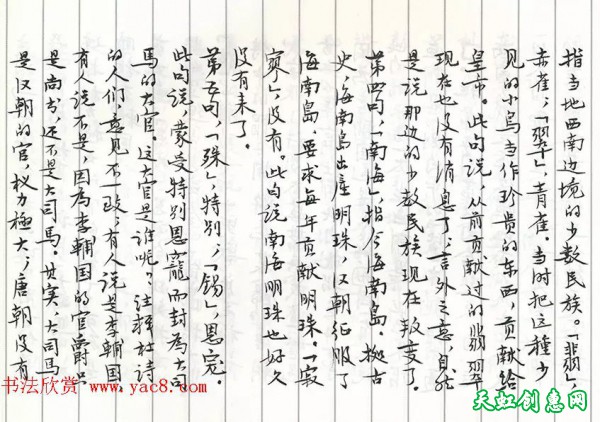 指当地西南边境的少数民族。「翡」，
赤雀，「翠」，青雀。当时把这種少
见的小鸟当作珍贵的东西，贡献给
皇帝。此句说，从前贡献过的翡翠
现在也没有消息了，言外之意，自然
是说那边的少数民族现在叛变了。
第四句，「南海」，指今海南岛。拠古
史，海南岛出産明珠，汉朝征服了
海南岛，要求每年贡献明珠。「寂
寥」，没有。此句说南海明珠也好久
没有来了。
第五句，「殊」，特别，「锡」，恩宠。
此句说，蒙受特别恩寵而封為大司
馬的大官。这大官是谁呢？注释杜诗
的人们，意见不一致，有人说是李輔国，
有人说不是，因為李輔国的官爵只
是尚书，还不是大司馬。其实，大司馬
是汉朝的官，权力極大，唐朝没有
书法欣赏 www.yac8.com
天虹创意网